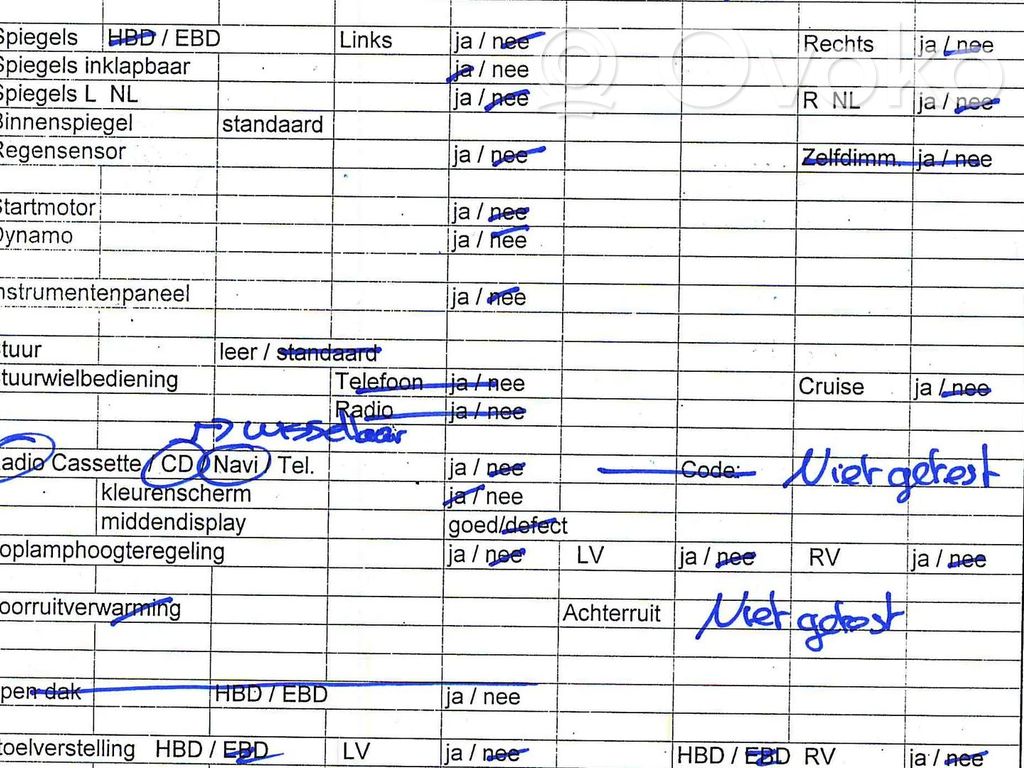 Spiegels HBD / EBD Links ja / nee Rechts ja / nee
Spiegels inklapbaar ja / nee
Spiegels L NL ja / nee R NL ja / nee
Binnenspiegel standaard
Regensensor ja / nee Zelfdimm. ja / nee
Startmotor ja / nee
Dynamo ja / nee
nstrumentenpaneel ja / nee
tuur leer / standaard
tuurwielbediening Telefoon ja / nee Cruise ja / nee
Radio ja / nee
→ wisselaar
adio Cassette / CD / Navi / Tel. ja / nee Code: Niet getest
kleurenscherm ja / nee
middendisplay goed/defect
oplamphoogteregeling ja / nee LV ja / nee RV ja / nee
oorruitverwarming Achterruit Niet getest
pen dak HBD / EBD ja / nee
toelverstelling HBD / EBD LV ja / nee HBD / EBD RV ja / nee
Ovoko